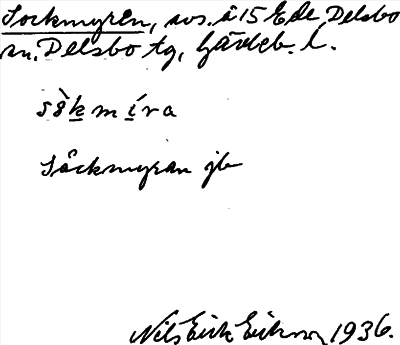 Sockmyren, sos. å 15 Ede Delsbo
sn, Delsbo tg, Gävleb. l.
sòkmíra
Såckmyran jb
Nils Eric Eikson 1936.